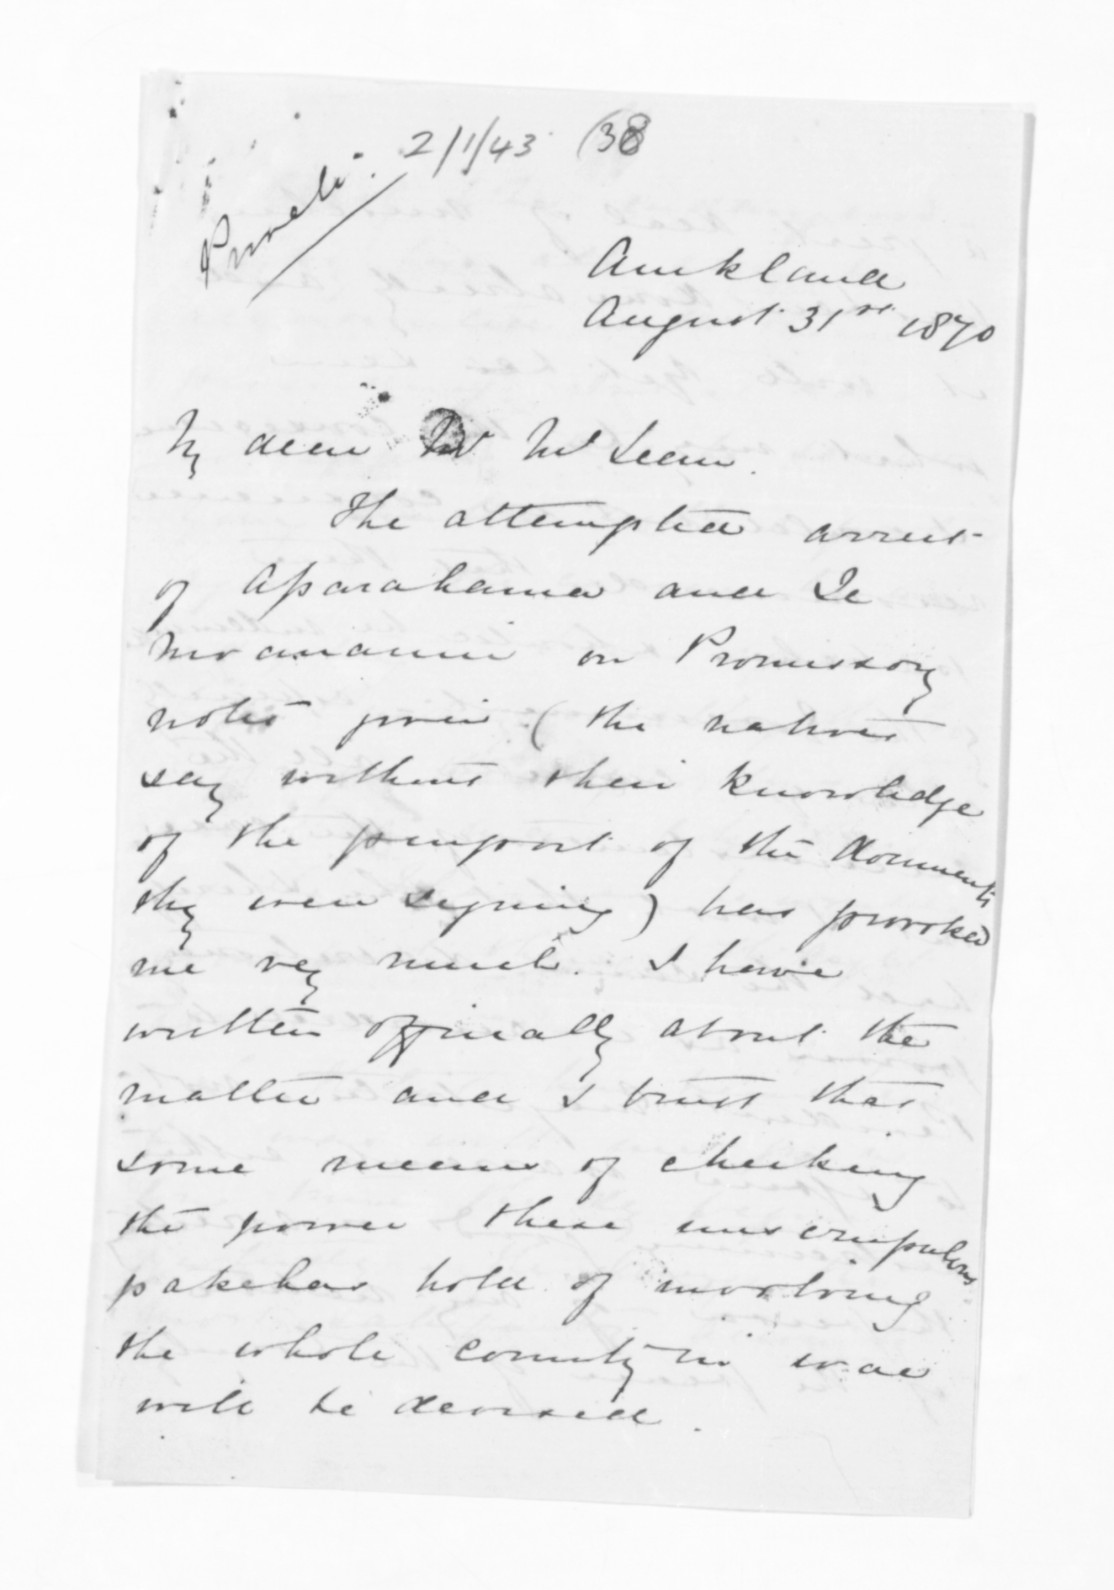 2/1/43 (38
Private.
Auckland
August 31st 1870
My dear Mr McLean.
The attempted arrest
of Aparahama and Te
Moananui on Promissory
notes given (the natives
say without their knowledge
of the purport of the documents
they were signing) has provoked
me very much. I have
written officially about the
matter and I trust that
some means of checking
the power these unscrupulous
pakehas hold of involving
the whole country in war
will be devised.